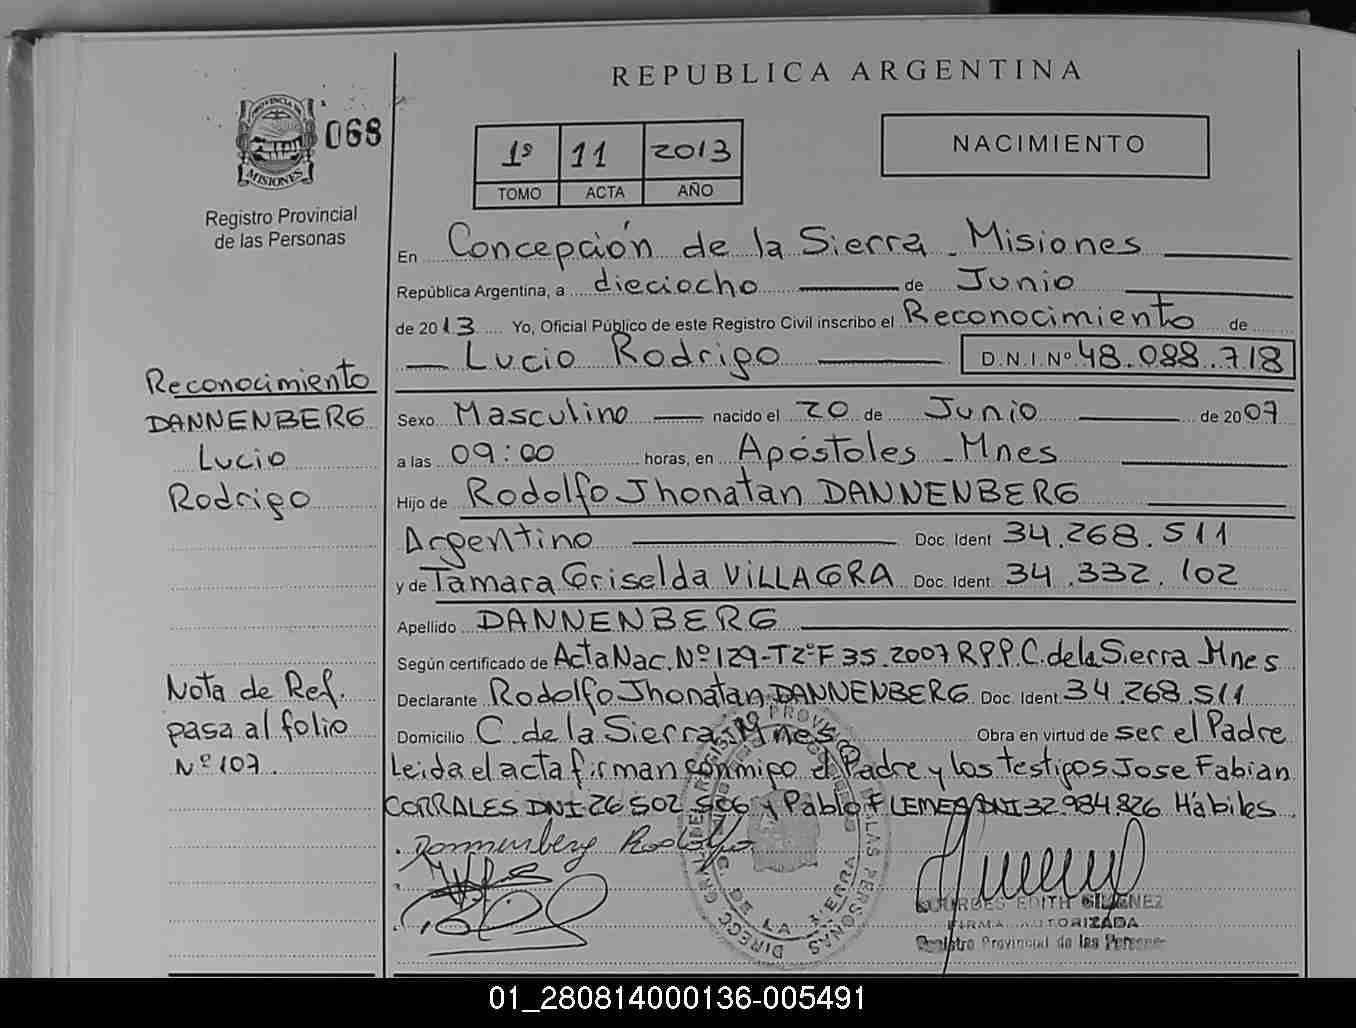 REPUBLICA ARGENTINA
PROVINCIA DE
MISIONES
068
Registro Provincial
de las Personas
1º 11 2013
TOMO ACTA AÑO
NACIMIENTO
En Concepción de la Sierra - Misiones
República Argentina, a dieciocho de Junio
de 2013 Yo, Oficial Público de este Registro Civil inscribo el Reconocimiento de
Lucio Rodrigo D.N.I.Nº 48.088.718
Reconocimiento
DANNENBERG
Lucio
Rodrigo
Sexo Masculino nacido el 20 de Junio de 2007
a las 09:00 horas, en Apóstoles - Mnes
Hijo de Rodolfo Jhonatan DANNENBERG
Argentino Doc. Ident 34.268.511
y de Tamara Griselda VILLAGRA Doc. Ident. 34.332.102
Apellido DANNENBERG
Según certificado de Acta Nac. Nº 129-T2ºF35.2007 R.P.P. C. de la Sierra Mnes
Nota de Ref.
pasa al folio
Nº 107.
Declarante Rodolfo Jhonatan DANNENBERG Doc. Ident. 34.268.511
Domicilio C. de la Sierra Mnes Obra en virtud de ser el Padre
Leida el acta firman conmigo el Padre y los testigos Jose Fabian
CORRALES DNI 26 502 506 y Pablo F LEMES DNI 32.984.826 Hábiles.
Dannenberg Rodolfo
LOURDES EDITH GIMENEZ
FIRMA AUTORIZADA
Registro Provincial de las Personas
01_280814000136-005491